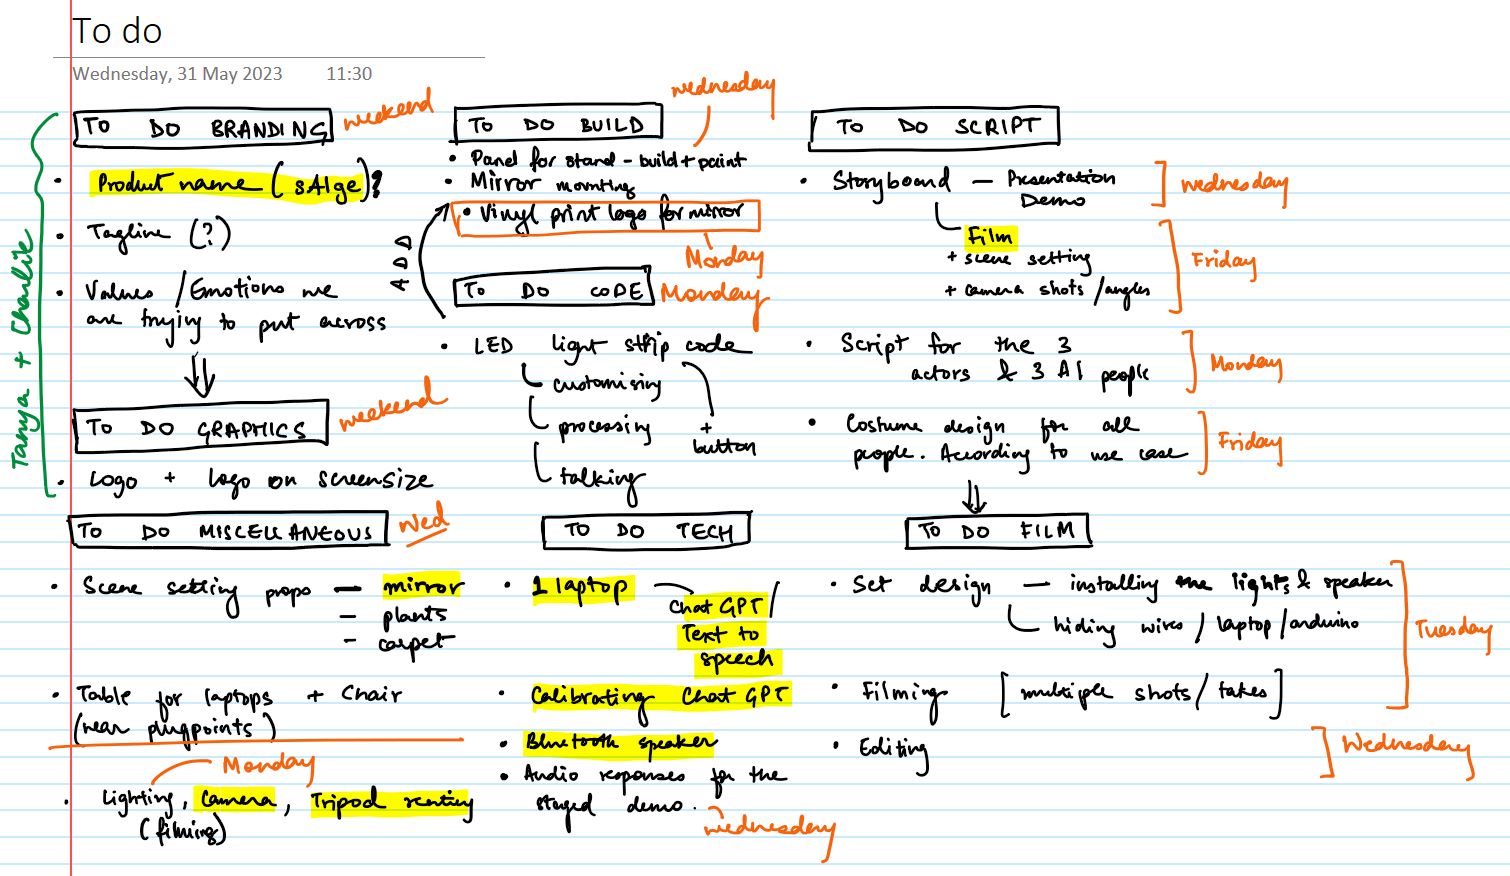 To do
Wednesday, 31 May 2023 11:30
Tanya + Charlie
TO DO BRANDING weekend
• Product name (sAIge)?
• Tagline (?)
• Values / Emotions we
are trying to put across
TO DO GRAPHICS weekend
• Logo + logo on screensize
TO DO MISCELLANEOUS Wed
• Scene setting props — mirror
— plants
— carpet
• Table for laptops + Chair
(near plugpoints)
Monday
• Lighting, Camera, Tripod renting
(filming)
TO DO BUILD wednesday
• Panel for stand - build + paint
• Mirror mounting
• Vinyl print logo for mirror
Monday
ADD
TO DO CODE Monday
• LED light strip code
customising
processing + button
talking
TO DO TECH
• 1 laptop
Chat GPT/
Text to
speech
• Calibrating Chat GPT
• Bluetooth speaker
• Audio responses for the
staged demo.
wednesday
TO DO SCRIPT
• Storyboard — Presentation
Demo
wednesday
Film
+ scene setting
+ camera shots / angles
Friday
• Script for the 3
actors & 3 AI people
Monday
• Costume design for all
people. According to use case
Friday
TO DO FILM
• Set design — installing the lights & speaker
hiding wires / laptop / arduino
Tuesday
• Filming [multiple shots / takes]
• Editing
Wednesday